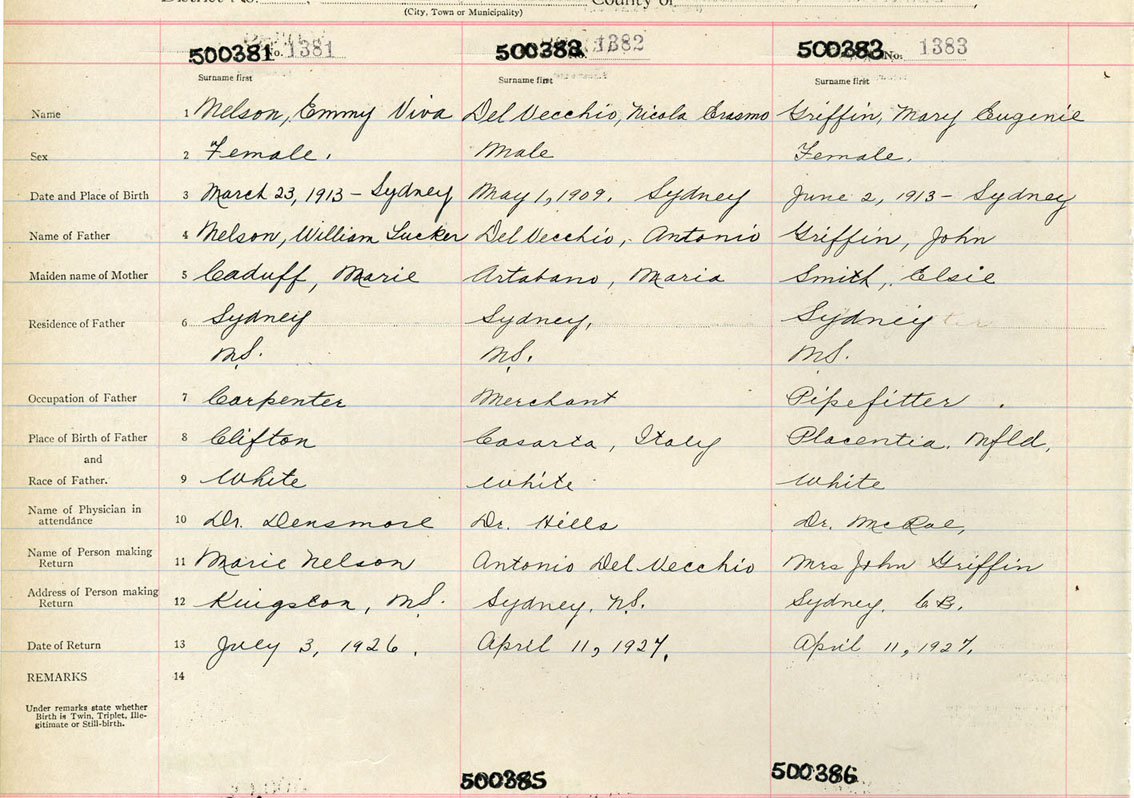 County of
(City, Town or Municipality)
500381 No. 1381 500382 No. 1382 500383 No: 1383
Surname first Surname first Surname first
Name 1 Nelson, Emmy Viva Del Vecchio, Nicola Erasmo Griffin, Mary Eugenie
Sex 2 Female. Male Female.
Date and Place of Birth 3 March 23, 1913 - Sydney May 1, 1909. Sydney June 2, 1913 - Sydney
Name of Father 4 Nelson, William Tucker Del Vecchio, Antonio Griffin, John
Maiden name of Mother 5 Caduff, Marie Artabano, Maria Smith, Elsie
Residence of Father 6 Sydney Sydney, Sydney
N.S. N.S. N.S.
Occupation of Father 7 Carpenter Merchant Pipefitter.
Place of Birth of Father 8 Clifton Casarta, Italy Placentia, Nfld,
and
Race of Father. 9 White White White
Name of Physician in attendance 10 Dr. Densmore Dr. Hills Dr. McRae,
Name of Person making Return 11 Marie Nelson Antonio Del Vecchio Mrs John Griffin
Address of Person making Return 12 Kingston, N.S. Sydney, N.S. Sydney. C.B.
Date of Return 13 July 3, 1926. April 11, 1927. April 11, 1927.
REMARKS 14
Under remarks state whether
Birth is Twin, Triplet, Ille-
gitimate or Still-birth.
500385 500386